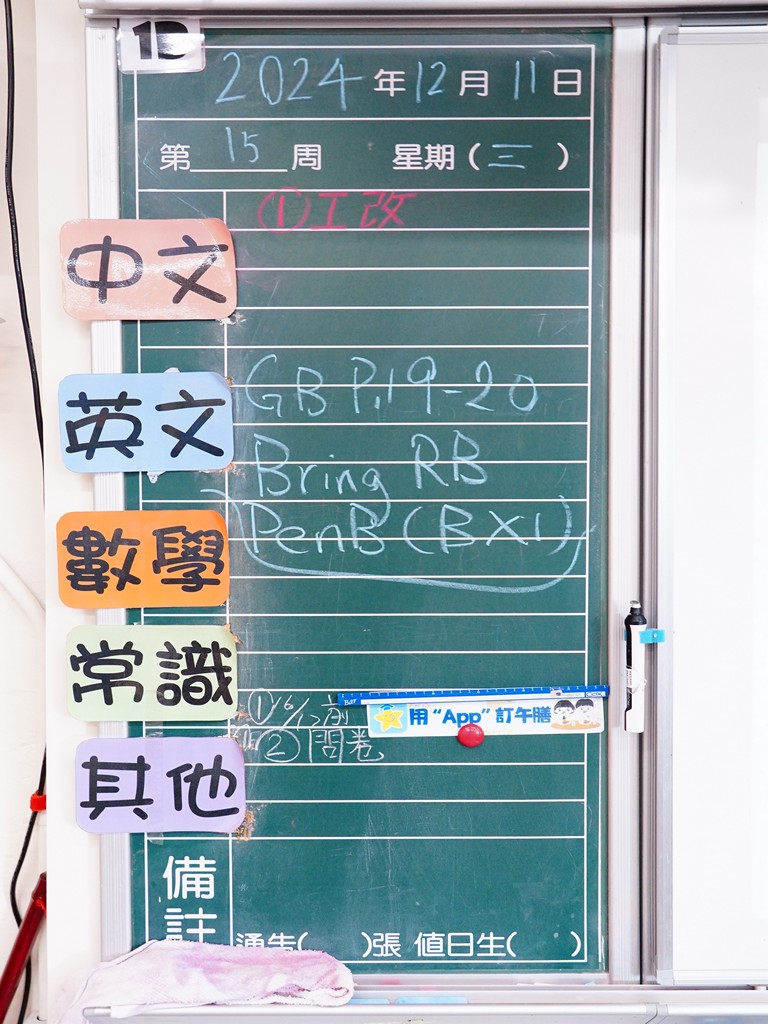 1D
2024年12月11日
第15周 星期(三)
①工改
中文
英文
GB P.19-20
Bring RB
PenB (BX1)
數學
常識
①16/12前
用“App”訂午膳
②問卷
其他
備註
通告( )張 值日生( )